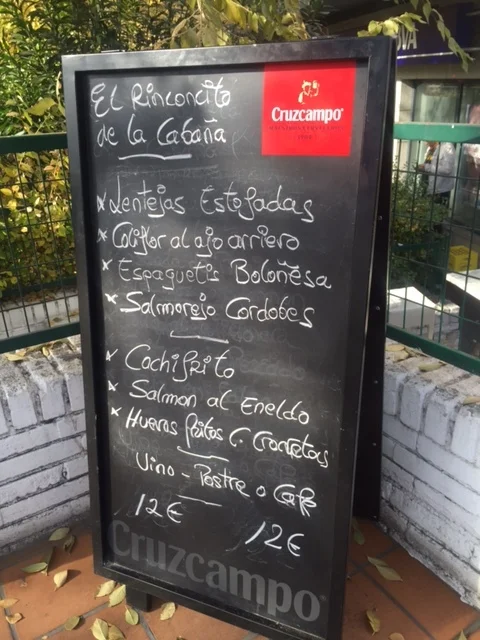 El Rinconcito
de la Cabaña
Cruzcampo
x Lentejas Estofadas
x Coliflor al ajo arriero
x Espaguetis Boloñesa
x Salmorejo Cordobes
x Cochifrito
x Salmon al Eneldo
x Huevos fritos C. Croquetas
Vino - Postre o Café
12€ 12€
Cruzcampo